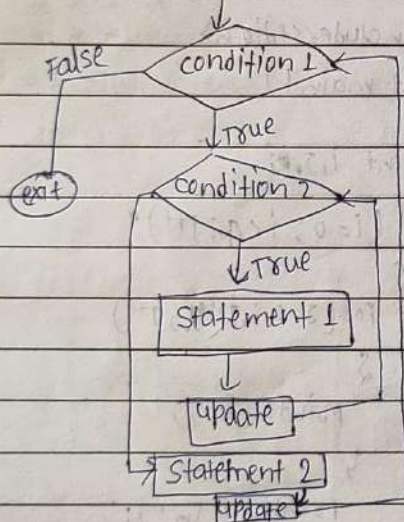 condition 1
False
True
exit
condition 2
True
Statement 1
update
Statement 2
update